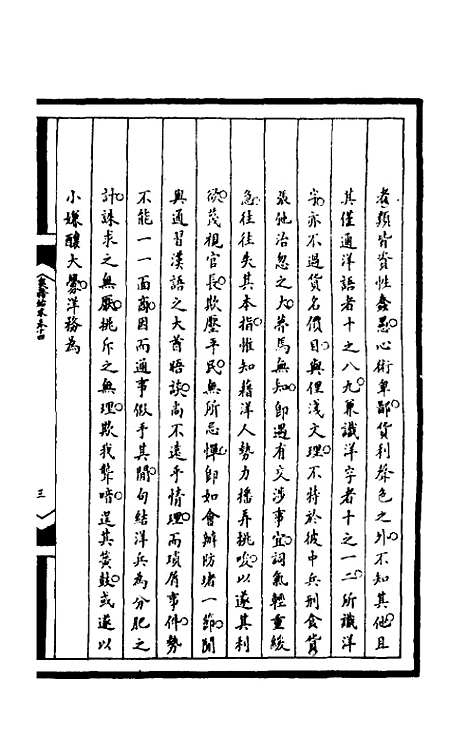 者類皆資性蠢愚心術卑鄙貨利聲色之外不知其他且
其僅通洋語者十之八九兼識洋字者十之一二所識洋
字亦不過貨名價目與俚淺文理不特於彼中兵刑食貨
張弛治忽之大瞢焉無知即遇有交涉事宜詞氣輕重緩
急往往失其本指惟知藉洋人勢力播弄挑唆以遂其利
欲蔑視官長欺壓平民無所忌憚即如會辦防堵一節閒
與通習漢語之大酋晤談尚不遠乎情理而瑣屑事件勢
不能一一面商因而通事假手其閒勾結洋兵為分肥之
計誅求之無厭挑斥之無理欺我聾喑逞其簧鼓或遂以
小嫌釀大釁洋務為
三